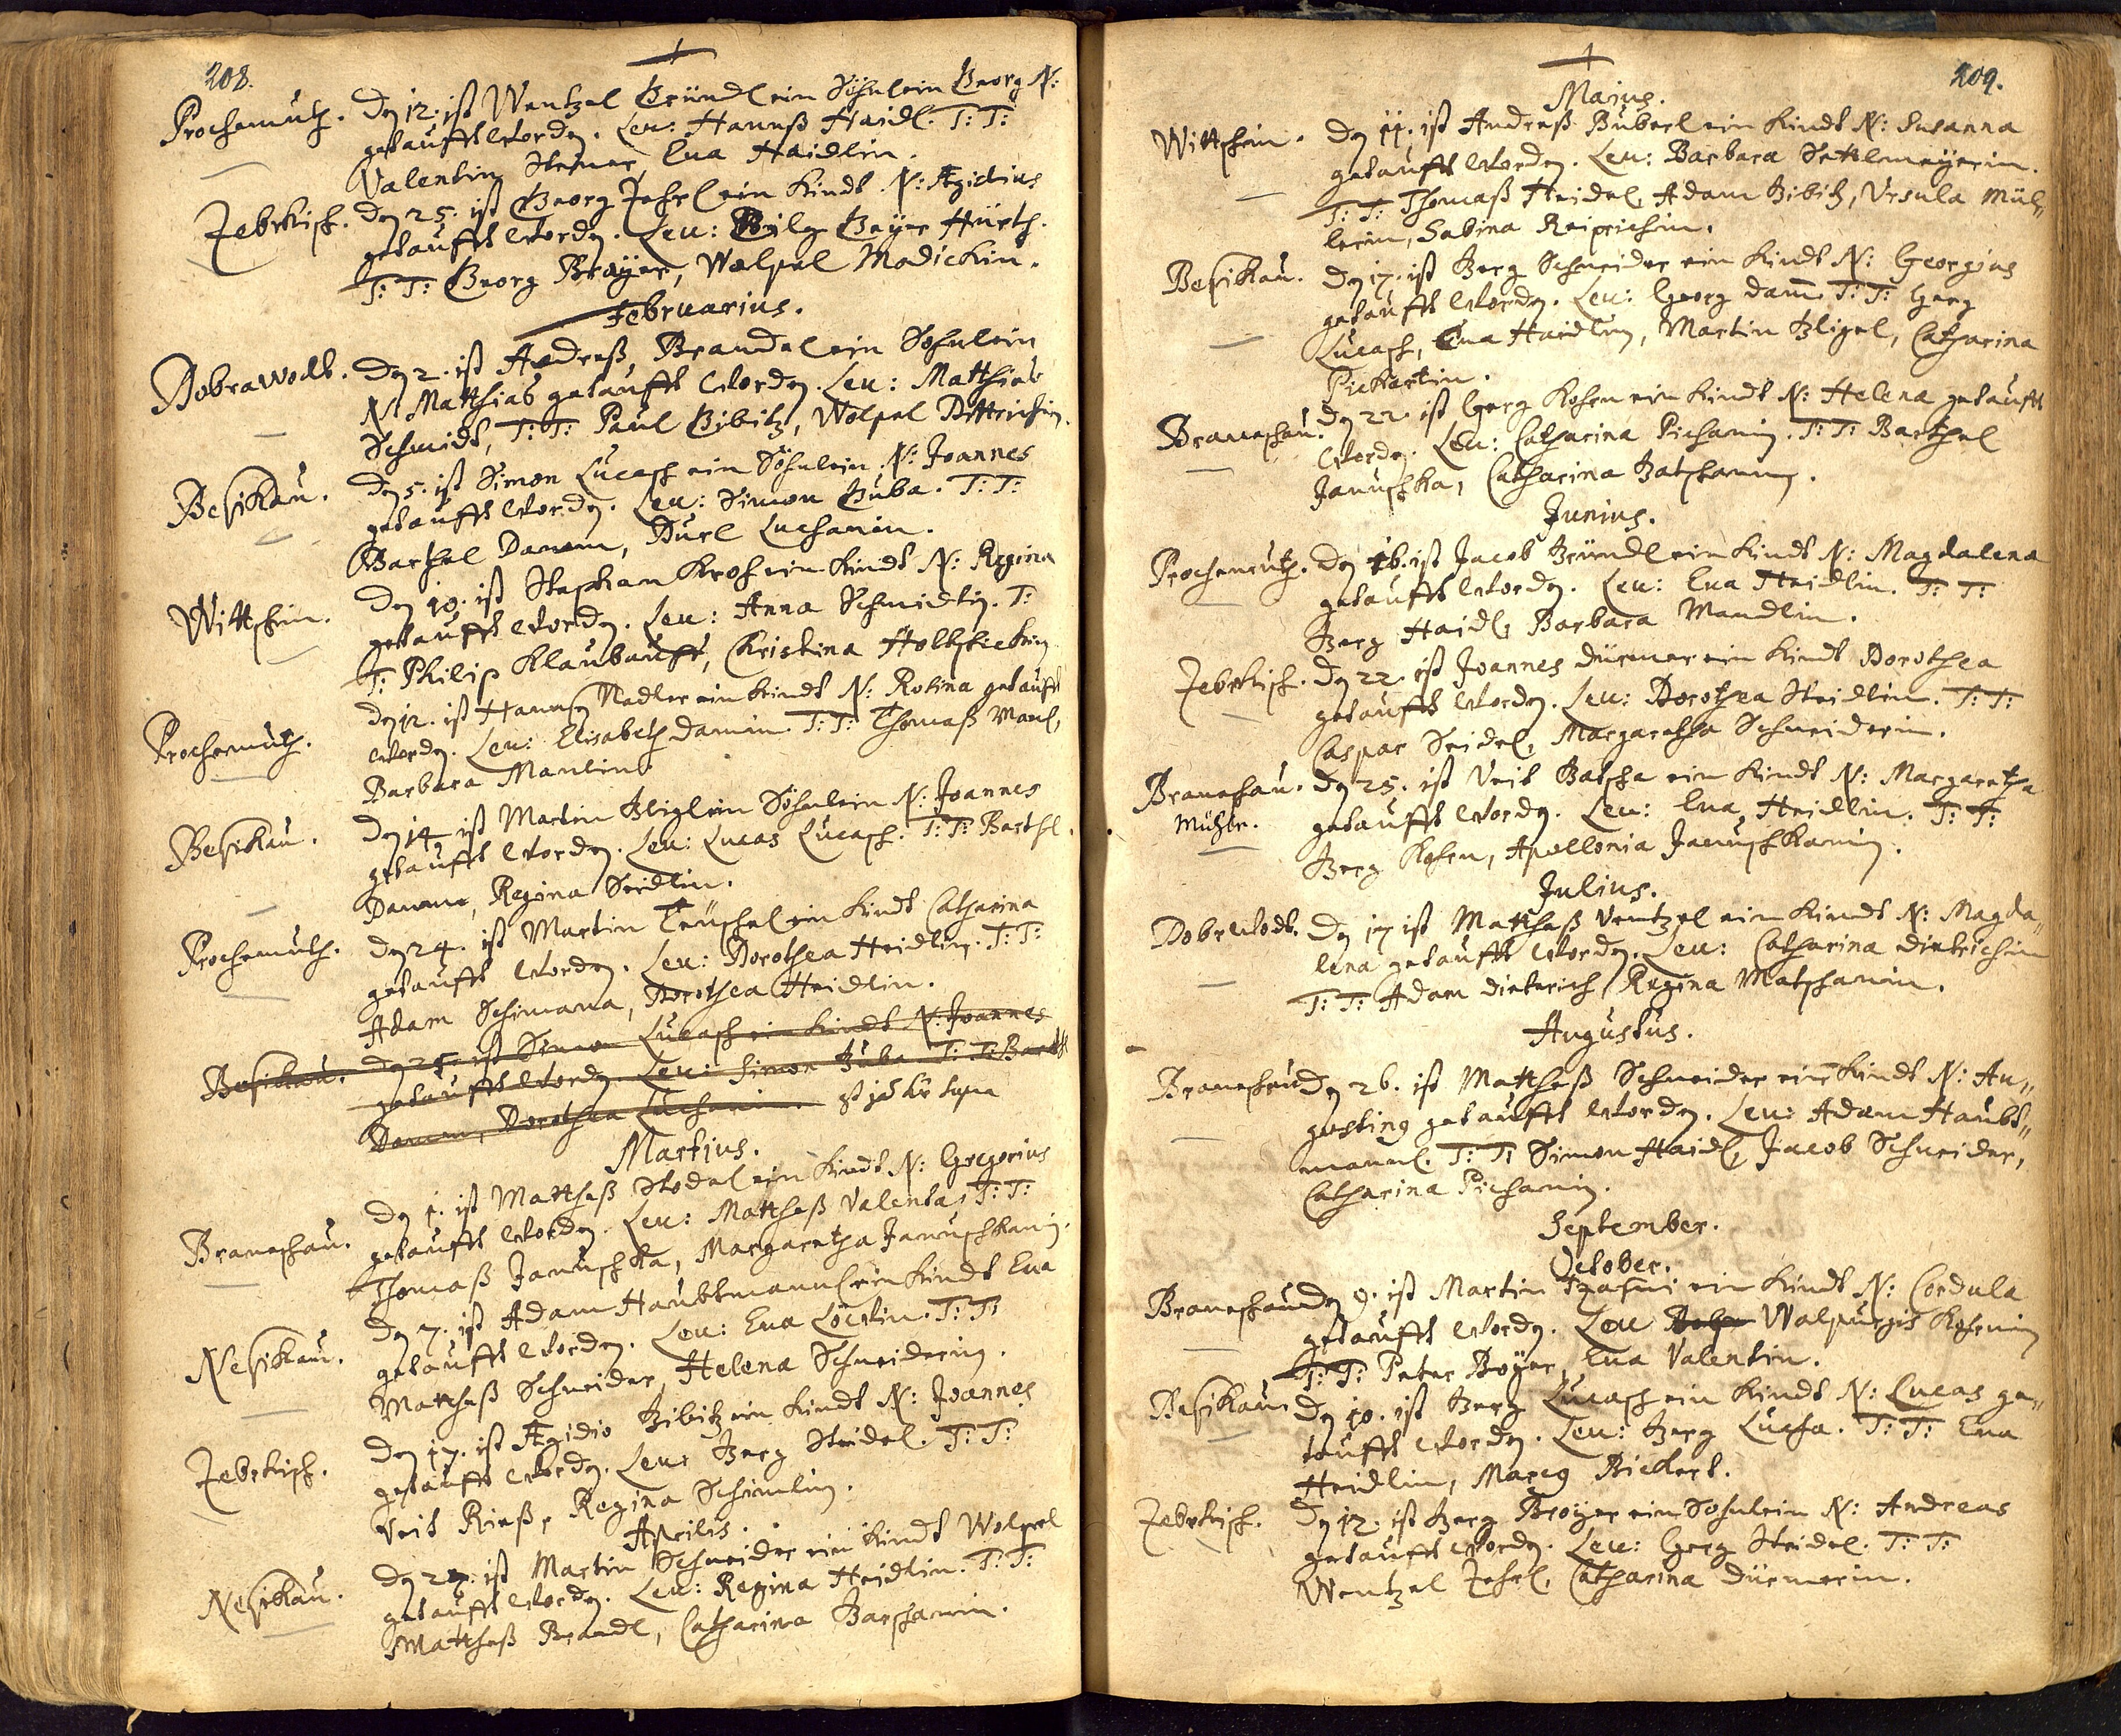 208.
Prochomuth. Den 12. ist Wentzel Gründl ein Söhnlein Georg N:
getaufft worden. Leu: Hannß Haidl. T: T:
Valentin Steiner, Eua Haidlin.
Zebrkisch. den 25. ist Georg Jehrl ein Kindt N: Ægidius
getaufft worden. Leu: Gilg Geÿer Hürth.
T: T: Georg Breÿer, Walpel Modickin.
Februarius.
Dobrawodt. Den 2. ist Andreß Brandel ein Sohnlein
N: Matthias getaufft worden. Leu: Matthias
Schmidt, T: T: Paul Gibitz, Wolpel Dittrichin.
Besikau. Den 5. ist Simon Lucasch ein Söhnlein N: Joannes
getaufft worden. Leu: Simon Guba. T: T:
Barthel Damm, Durl Luchanin.
Wittschin. Den 10. ist Stephan Kroh ein Kindt N: Regina
getaufft worden. Leu: Anna Schmidtin. T:
T: Philip Klaubauff, Christina
Prochomuth. Den 12. ist Hannß Nadler ein Kindt N: Rosina getaufft
worden. Leu: Elisabeth Damin T: T: Thomaß Manl,
Barbara Manlin.
Besikau. Den 14. ist Martin Gligl ein Söhnlein N: Joannes
getaufft worden. Leu: Lucas Lucasch. T: T: Barthl
Damm, Regina Seidlin.
Prochomuth. Den 24. ist Martin Teuschel ein Kindt Catharina
getaufft worden. Leu: Dorothea Heidlin. T: T:
Adam Schimana, Dorothea Heidlin.
Besikau. Den 25. ist Simon Lucasch ein Kindt N: Joannes
getaufft worden. Leu: Simon Guba T: T: Barthl
Damm, Dorothea Luchanin.
Martius.
Braneschau. Den 1. ist Mattheß Stodel ein Kindt N: Gregorius
getaufft worden. Leu: Mattheß Valenta, T: T:
Thomaß Januschka, Margaretha Januschkanin.
Nesikau. Den 7. ist Adam Haubtmannl ein Kindt Eua
getaufft worden. Leu: Eua Löwin. T: T:
Mattheß Schneider, Helena Schneiderin.
Zebrkisch. Den 17. ist Ægidio Gibitz ein Kindt N: Joannes
getaufft worden. Leu: Gerg Heidel. T: T:
Veit Rieß, Regina Schimlin.
Aprilis.
Nesikau. Den 27. ist Martin Schneider ein Kindt Wolpel
getaufft worden. Leu: Regina Heidlin. T: T:
Mattheß Brandl, Catharina Barschanin.
209.
Maius.
Wittschin. Den 11. ist Andreß Buberl ein Kindt N: Susanna
getaufft worden. Leu: Barbara Settlmeÿerin.
T: T: Thomaß Heidel, Adam Gibitz, Vrsula Mül„
lerin, Sabina Reiprichin.
Besikau. Den 17. ist Gerg Schneider ein Kindt N: Georgius
getaufft worden. Leu: Georg Dam̄. T: T: Gerg
Lucasch, Eua Haidlin, Martin Gligel, Catharina
Pickertin.
Braneschau. Den 22. ist Gerg Kohen ein Kindt N: Helena getaufft
worden. Leu: Catharina Pichanin. T: T: Barthel
Januschka, Catharina Batschanin.
Junius.
Prochomuth. Den 16. ist Jacob Gründl ein Kindt N: Magdalena
getaufft worden. Leu: Eua Heidlin. T: T:
Gerg Haidl, Barbara Mandlin.
Zebrkisch. Den 22. ist Joannes Dürmer ein Kindt Dorothea
getaufft worden. Leu: Dorothea Heidlin. T: T:
Caspar Seidel, Margaretha Schneiderin.
Braneschau. Den 25. ist Veit Batscha ein Kindt N: Margaretha
Mühler. getaufft worden. Leu: Eua Heidlin. T: T:
Gerg Kohen, Apollonia Januschkanin.
Julius.
Dobrwodt. Den 17 ist Mattheß Ventzel ein Kindt N: Magda„
lena getaufft worden. Leu: Catharina Dietrichin
T: T: Adam Dieterich, Regina Matschanin.
Augustus.
Braneschau Den 26. ist Mattheß Schneider ein Kindt N: Au„
gustinus getaufft worden. Leu: Adam Haubt„
mannl. T: T: Simon Haidl, Jacob Schneider,
Catharina Pichanin.
September.
October.
Braneschau Den 9. ist Martin ein Kindt N: Cordula
getaufft worden. Leu Walpurgis Kohenin
T: T: Peter Boÿer, Eua Valentin.
Besikau. Den 10. ist Gerg Lucasch ein Kindt N: Lucas ge„
taufft worden. Leu: Gerg Lucha. T: T: Eua
Heidlin, Marcg Bickert.
Zebrkisch. Den 12. ist Gerg Broÿer ein Sohnlein N: Andreas
getaufft worden. Leu: Gerg Heidel. T: T:
Wentzel Jehrl, Catharina Dürmerin.